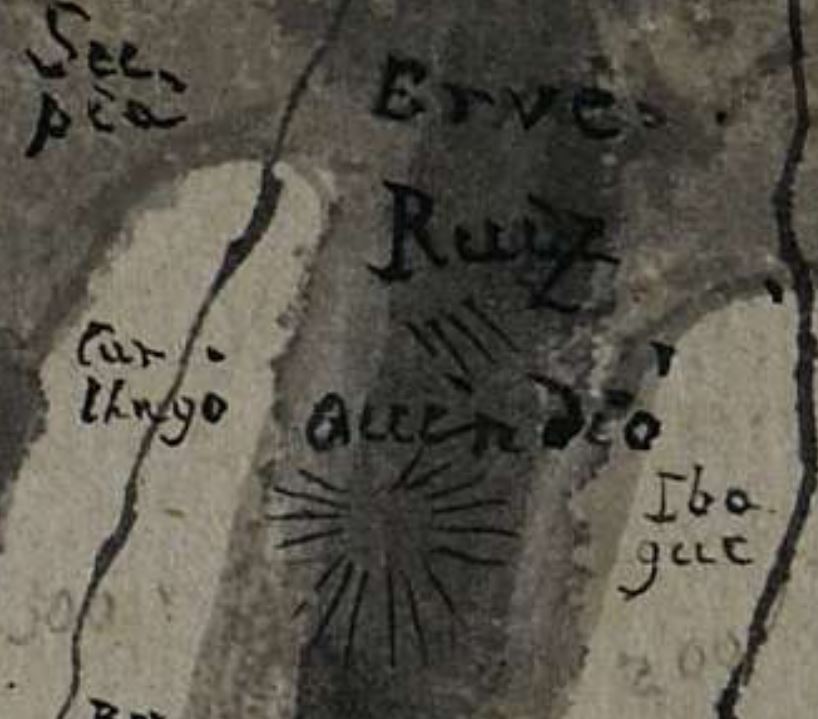 See
pia
Erve.
Ruiz
Car
thago
Quendio
Iba
gue
500
200